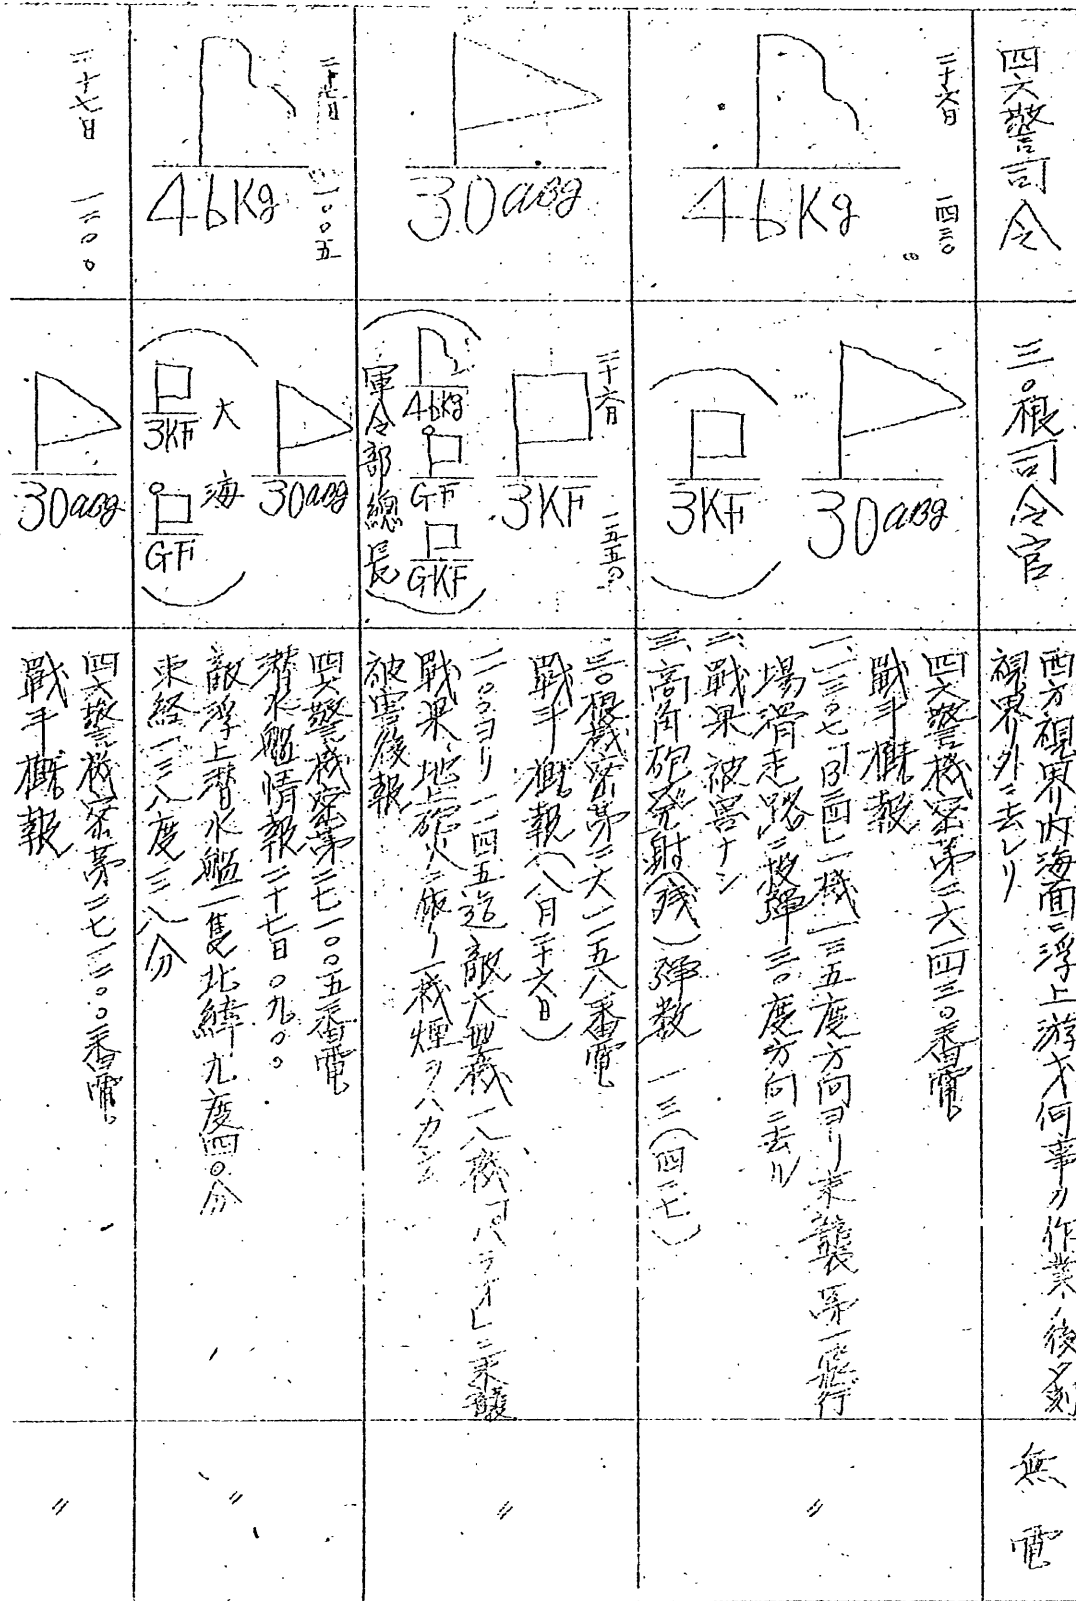 四六警司令
三〇根司令官
西方視界内海面ニ浮上游弋何事カ作業ノ後夕刻
視界外ニ去レリ
無電
二十六日 一四三〇
46Kg
30aBg
3KF
四六警機密第二六一四三〇番電
戰斗概報
一、一三〇七「B二四」一機一三五度方向ヨリ来襲第一飛行
場滑走路ニ投弾三〇度方向ニ去ル
二、戰果被害ナシ
三、高角砲発射(残)弾数 一三(四二七)
〃
30aBg
二十六日 一五五〇
3KF
46Kg
GF
GKF
軍令部總長
三〇根機密第二六一一五八番電
戰斗概報(八月二十六日)
一一〇〇ヨリ一一四五迄敵大型機一八機「パラオ」ニ来襲
戰果、地上砲火ニ依リ一機煙ヲハカシム
被害後報
〃
二十七日 一〇〇五
46Kg
30aBg
大海
3KF
GF
四六警機密第二七一〇〇五番電
潜水艦情報二十七日〇九〇〇
敵浮上潜水艦一隻北緯九度四〇分
東経一三八度三八分
〃
二十七日 一二〇〇
30aBg
四六警機密第二七一二〇〇番電
戰斗概報
〃